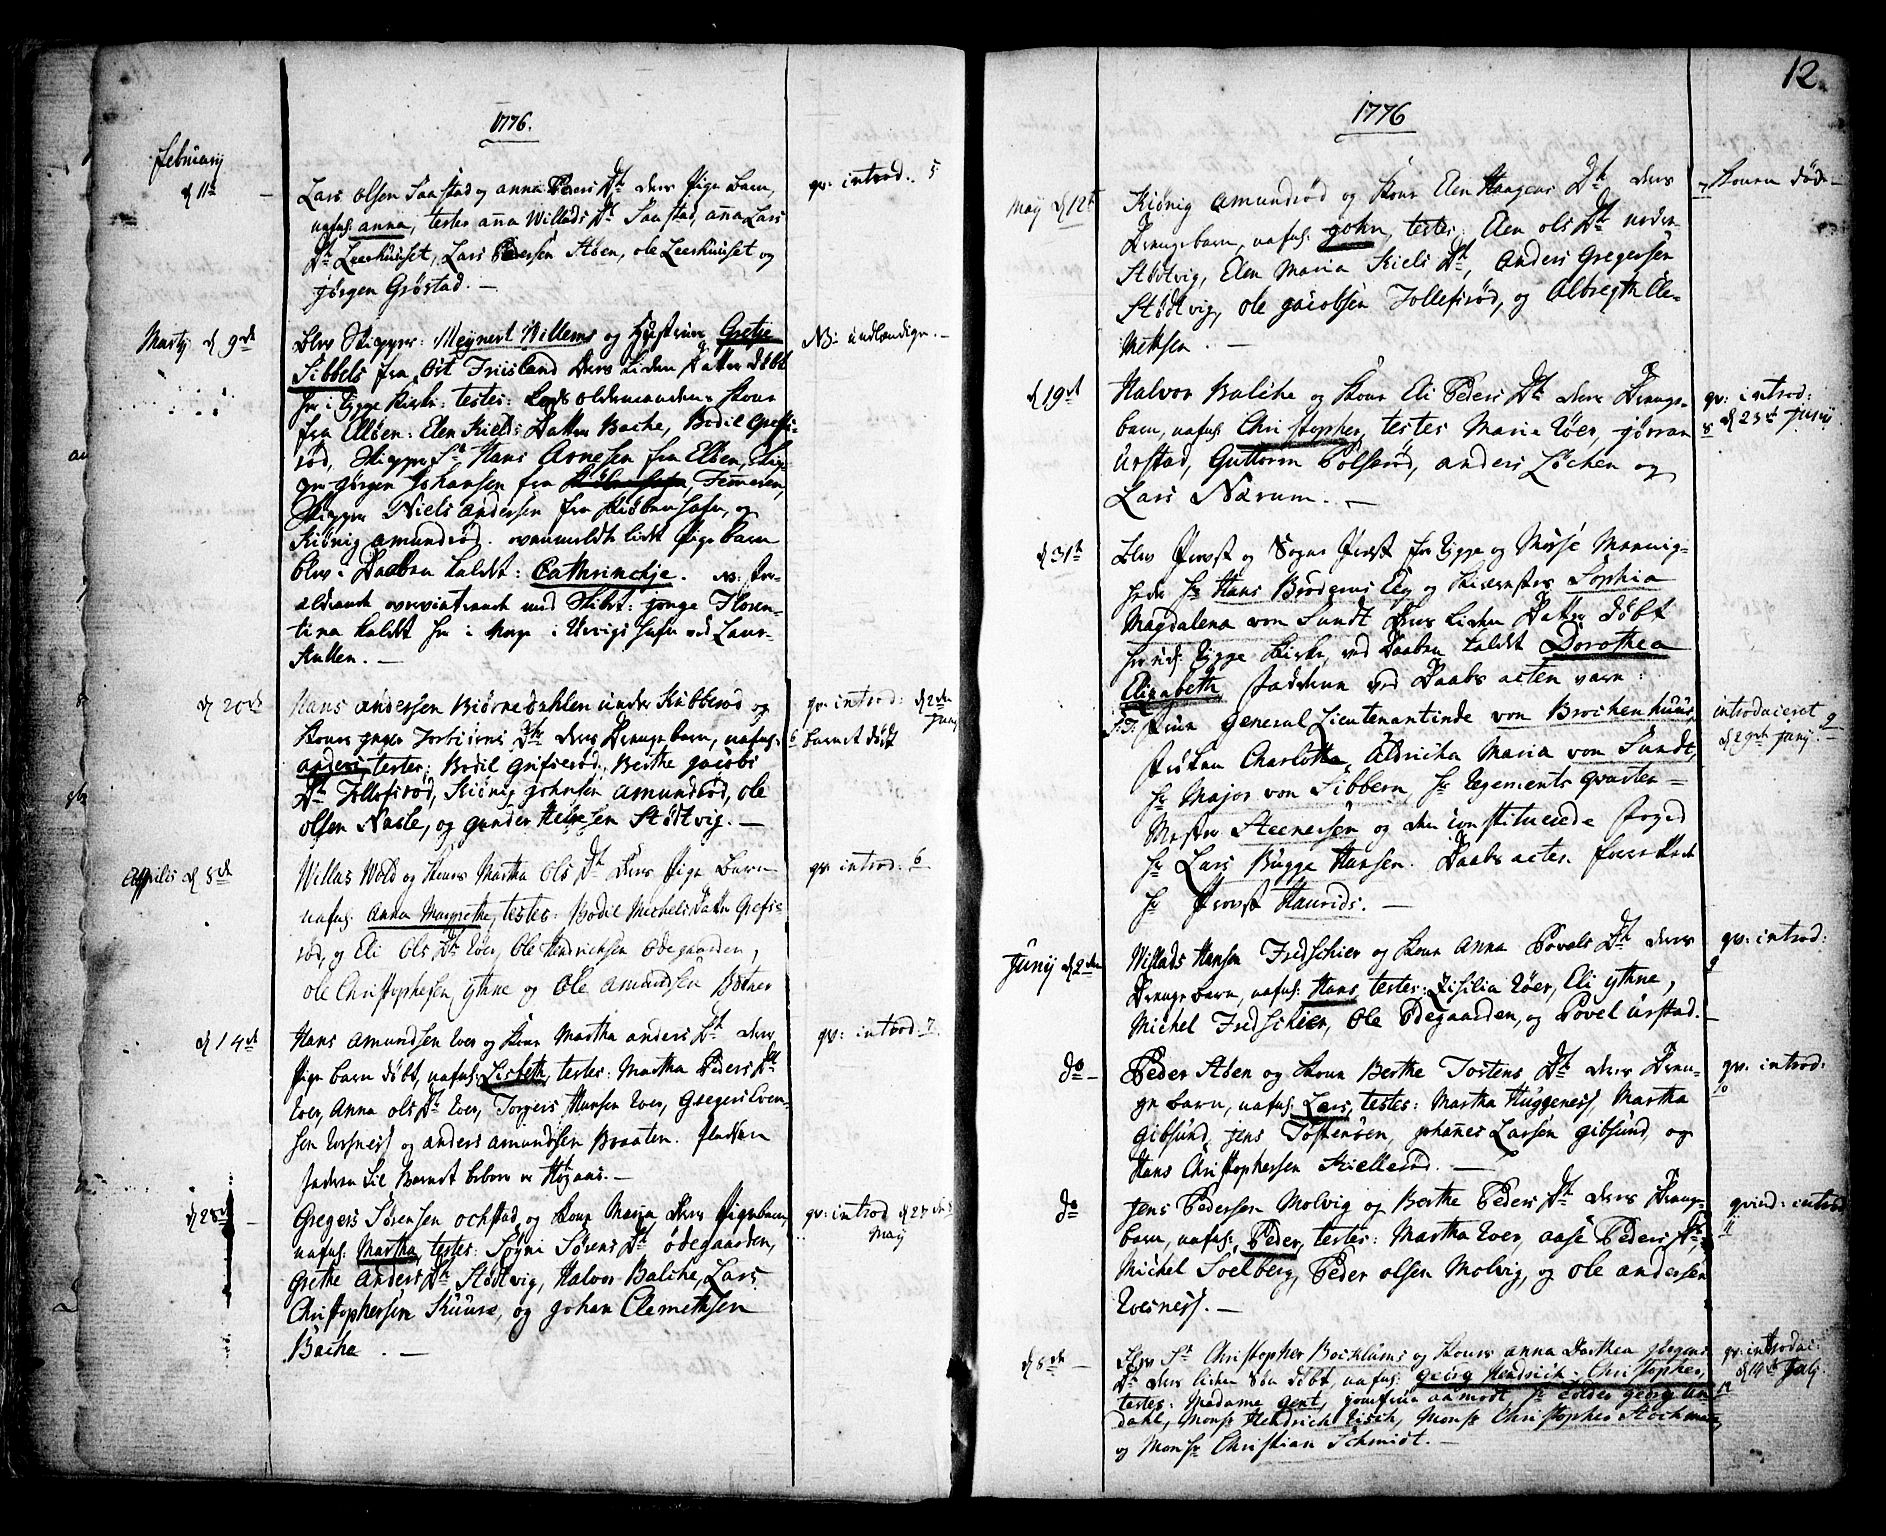 1776.
February
d 11te
Lars Olsen Saastad og anna Peders Dtr deres Pige Barn,
nafnl: anna, testes anna Willads Dtr Saastad, anna Lars
Dtr Leerhuuset, Lars Pedersen Aben, ole Leerhuuset og
Jørgen Grøstad. —
qv: introd: 5
Marty d 9de
Blev Skipper: Meynert Willems og Hustrue Gretje
Sibbels fra Ost Friisland Deres Liden Datter døbt
her i Rygge Kirke: testes: Lods oldermandens Kone
fra Elløen: Elen Kields Datter Bache, Bodil Grefs-
rød, Skipper Sr Hans Arnesen fra Elløen, Skip-
per Jørgen Johansen fra Femøen,
Skipper Niels Andersen fra Kiøbenhafn, og
Kiønig amundrød. ovenmeldte lidet Pige barn
blev i Daaben kaldt: Cathrinetje. NB: For-
ældrene overvintrede med Skibet: jonge Floren-
tina kaldet her i Norge i Ververigs hafn ved Laur-
kullen. —
NB: udlændige. —
d 20de
Hans Andersen Biørnedahlen under Kubberød og
Kones Inger Torbiørns Dtr deres Drengebarn, nafnl:
anders testes: Bodil Grefsrød, Berthe Jacobs
Dtr Tollefsrød, Kiønig Johnsen amundrød, ole
olsen Nasle, og Gunder Helgesen Stødtvig. —
qv: introd: d 2den Juny
6 barnet dødt
Aprilis d 8de
Willas Wold og Kones Martha Ols Dtr Deres Pige Barn
nafnl: Anna Margrethe, testes: Bodil Michels Datter Grefs-
rød, og Eli Ols Dtr Roer, Ole Hendrichsen Odegaarden,
ole Christophersen ythne og Ole Amundsen Botner
qv introd: 6
d 14de
Hans Amundsen Roer og Kone Martha anders Dtr deres
Pige barn døbt, nafnl: Lisbeth, testes: Martha Peders Dtr
Roer, Anna ols Dtr Roer, Torgiers Hansen Roer, Gregers Even-
sen Rosness og anders amundsen Braaten.
Faderen til Barnet
qv: introd: 7.
d 28de —
Gregers Sørensen ochstad og Kone Maria Deres Pigebarn,
nafnl: Martha, testes: Signi Sørens Dtr ødegaarden,
Grethe Anders Dtr Stødtvig, Halvor Balche, Lars
Christophersen Kuure, og Johan Clemethsen
Bache. —
qv: introd d 27de May
12.
1776
May d 12te
Kiønig Amundrød og Kone Elen Haagens Dtr deres
Drengebarn, nafnl: John, testes: Elen ols Dtr neden
Stødtvig, Elen Maria Kiels Dtr, Anders Gregersen
Stødtvig, ole Jacobsen Tollefsrød, og Albregth Cle-
metsen. —
7 Konen døde —
d 19de
Halvor Balche og Kone Eli Peders Dtr deres Drenge-
barn, nafnl: Christopher, testes Maria Roer, Jørran
Urstad, Guttorm Polserød, anders Løchen og
Lars Nærum. —
qv: introd:
8 d 23de Juny
d 31te
Blev Provst og Sogne Præst for Rygge og Mosse Meenig-
heder Hr Hans Brodersøns Elg og Kiæreste Sophia
Magdalena von Sundt Deres Liden Datter døbt
her udi Rygge Kirke, ved Daaben kaldt Dorothea
Elizabeth Fadderne ved Daabs acten vare:
Frue General Lieutenantinde von Brochenhuus,
Frøken Charlotta Aldricha Maria von Sundt,
Hr Major von Sibbern, Hr Regements Qvarteer-
Mester Steenersen og den constituerede Foged
Hr Lars Bugge Hansen. Daabs acten forrettede
Hr Provst Haurids. —
introduceret
d 29de Juny. 9
Juny d 2den
Willads Hansen Fredschier og Kone Anna Povels Dtr deres
Drengebarn, nafnl: Hans testes: Zisilia Roer, Eli ythne,
Michel Fredschier, Ole Odegaarden, og Povel Urstad. —
qv: introd:
9
do —
Peder Aben og Kone Berthe Tostens Dtr deres Dren-
ge barn, nafnl: Lars, testes: Martha Huggeness, Martha
Gibsund, Jens Tostensen, Johannes Larsen Gibsund, og
Hans Christophersen Kiellerød. —
qv: introd:
10
do
Jens Pedersen Molvig og Berthe Peders Dtr deres Drenge-
barn, nafnl: Peder, testes: Martha Roer, aase Peders Dtr,
Michel Soelberg, Peder olsen Molvig, og ole andersen
Roesness. —
qvind: introd
11
d 8de —
Blev Sr Christopher Bocklums og Kones anna Dorthea Jørgens
Dtr deres liden Søn døbt, nafnl: Georg Hendrich Christopher,
testes: Madame Gent, Jomfrue aamodt Sr Georg an-
dahl, Mons: Hendrich Risch, Monsr Christopher Stochman,
og Monsr Christian Schmidt. —
qv: introduc:
d 14de July
12